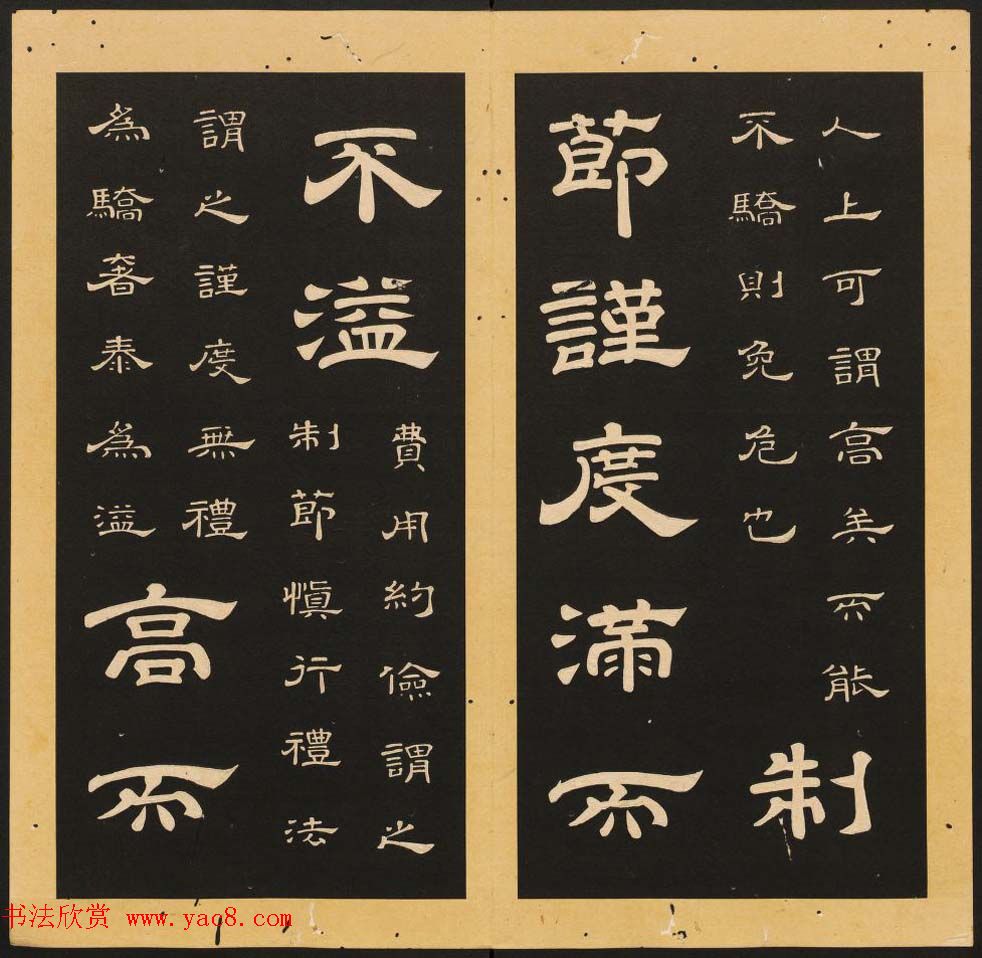 人上可謂高矣而能
不驕則免危也
制
節謹度滿而
不溢
費用約儉謂之
制節慎行禮法
謂之謹度無禮
爲驕奢泰爲溢
高而
书法欣赏 www.yac8.com